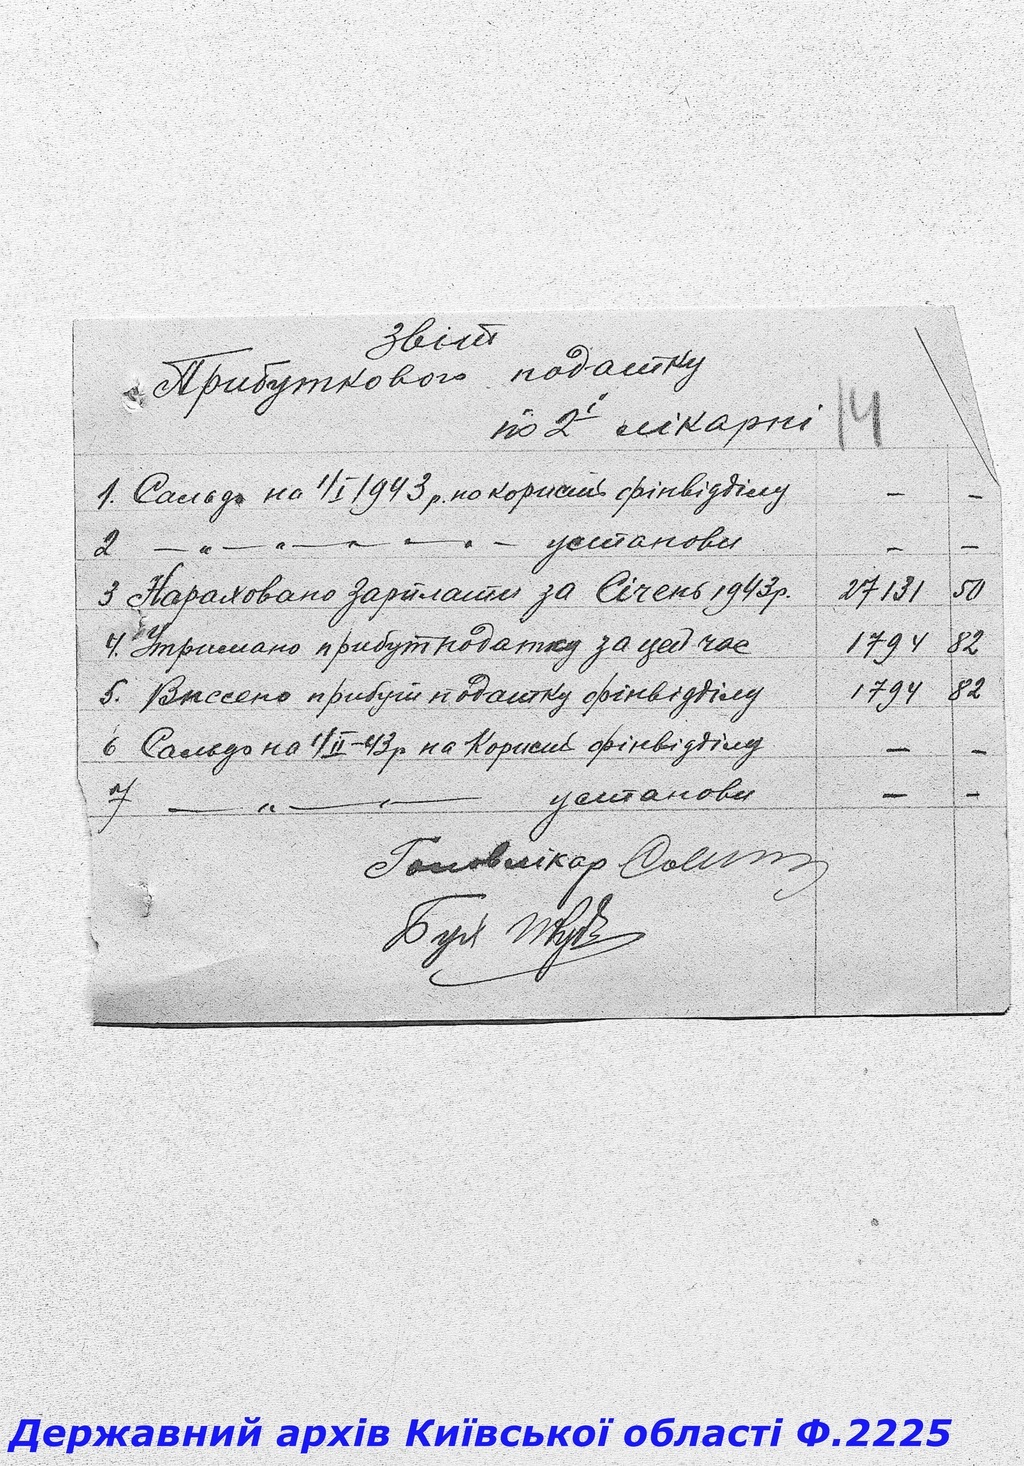 Звіт
Прибуткового податку
по 2ій лікарні
14
1. Сальдо на 1/I 1943 р. на користь фінвідділу — —
2 — „ — „ — „ — „ — „ — установи — —
3 Нараховано зарплати за Січень 1943 р. 27131 50
4. Утримано прибутподатку за цей час 1794 82
5. Внесено прибутподатку фінвідділу 1794 82
6 Сальдо на 1/II-43 р на Користь фінвідділу — —
7 — „ — „ — установи — —
Головлікар
Бух
Державний архів Київської області Ф.2225